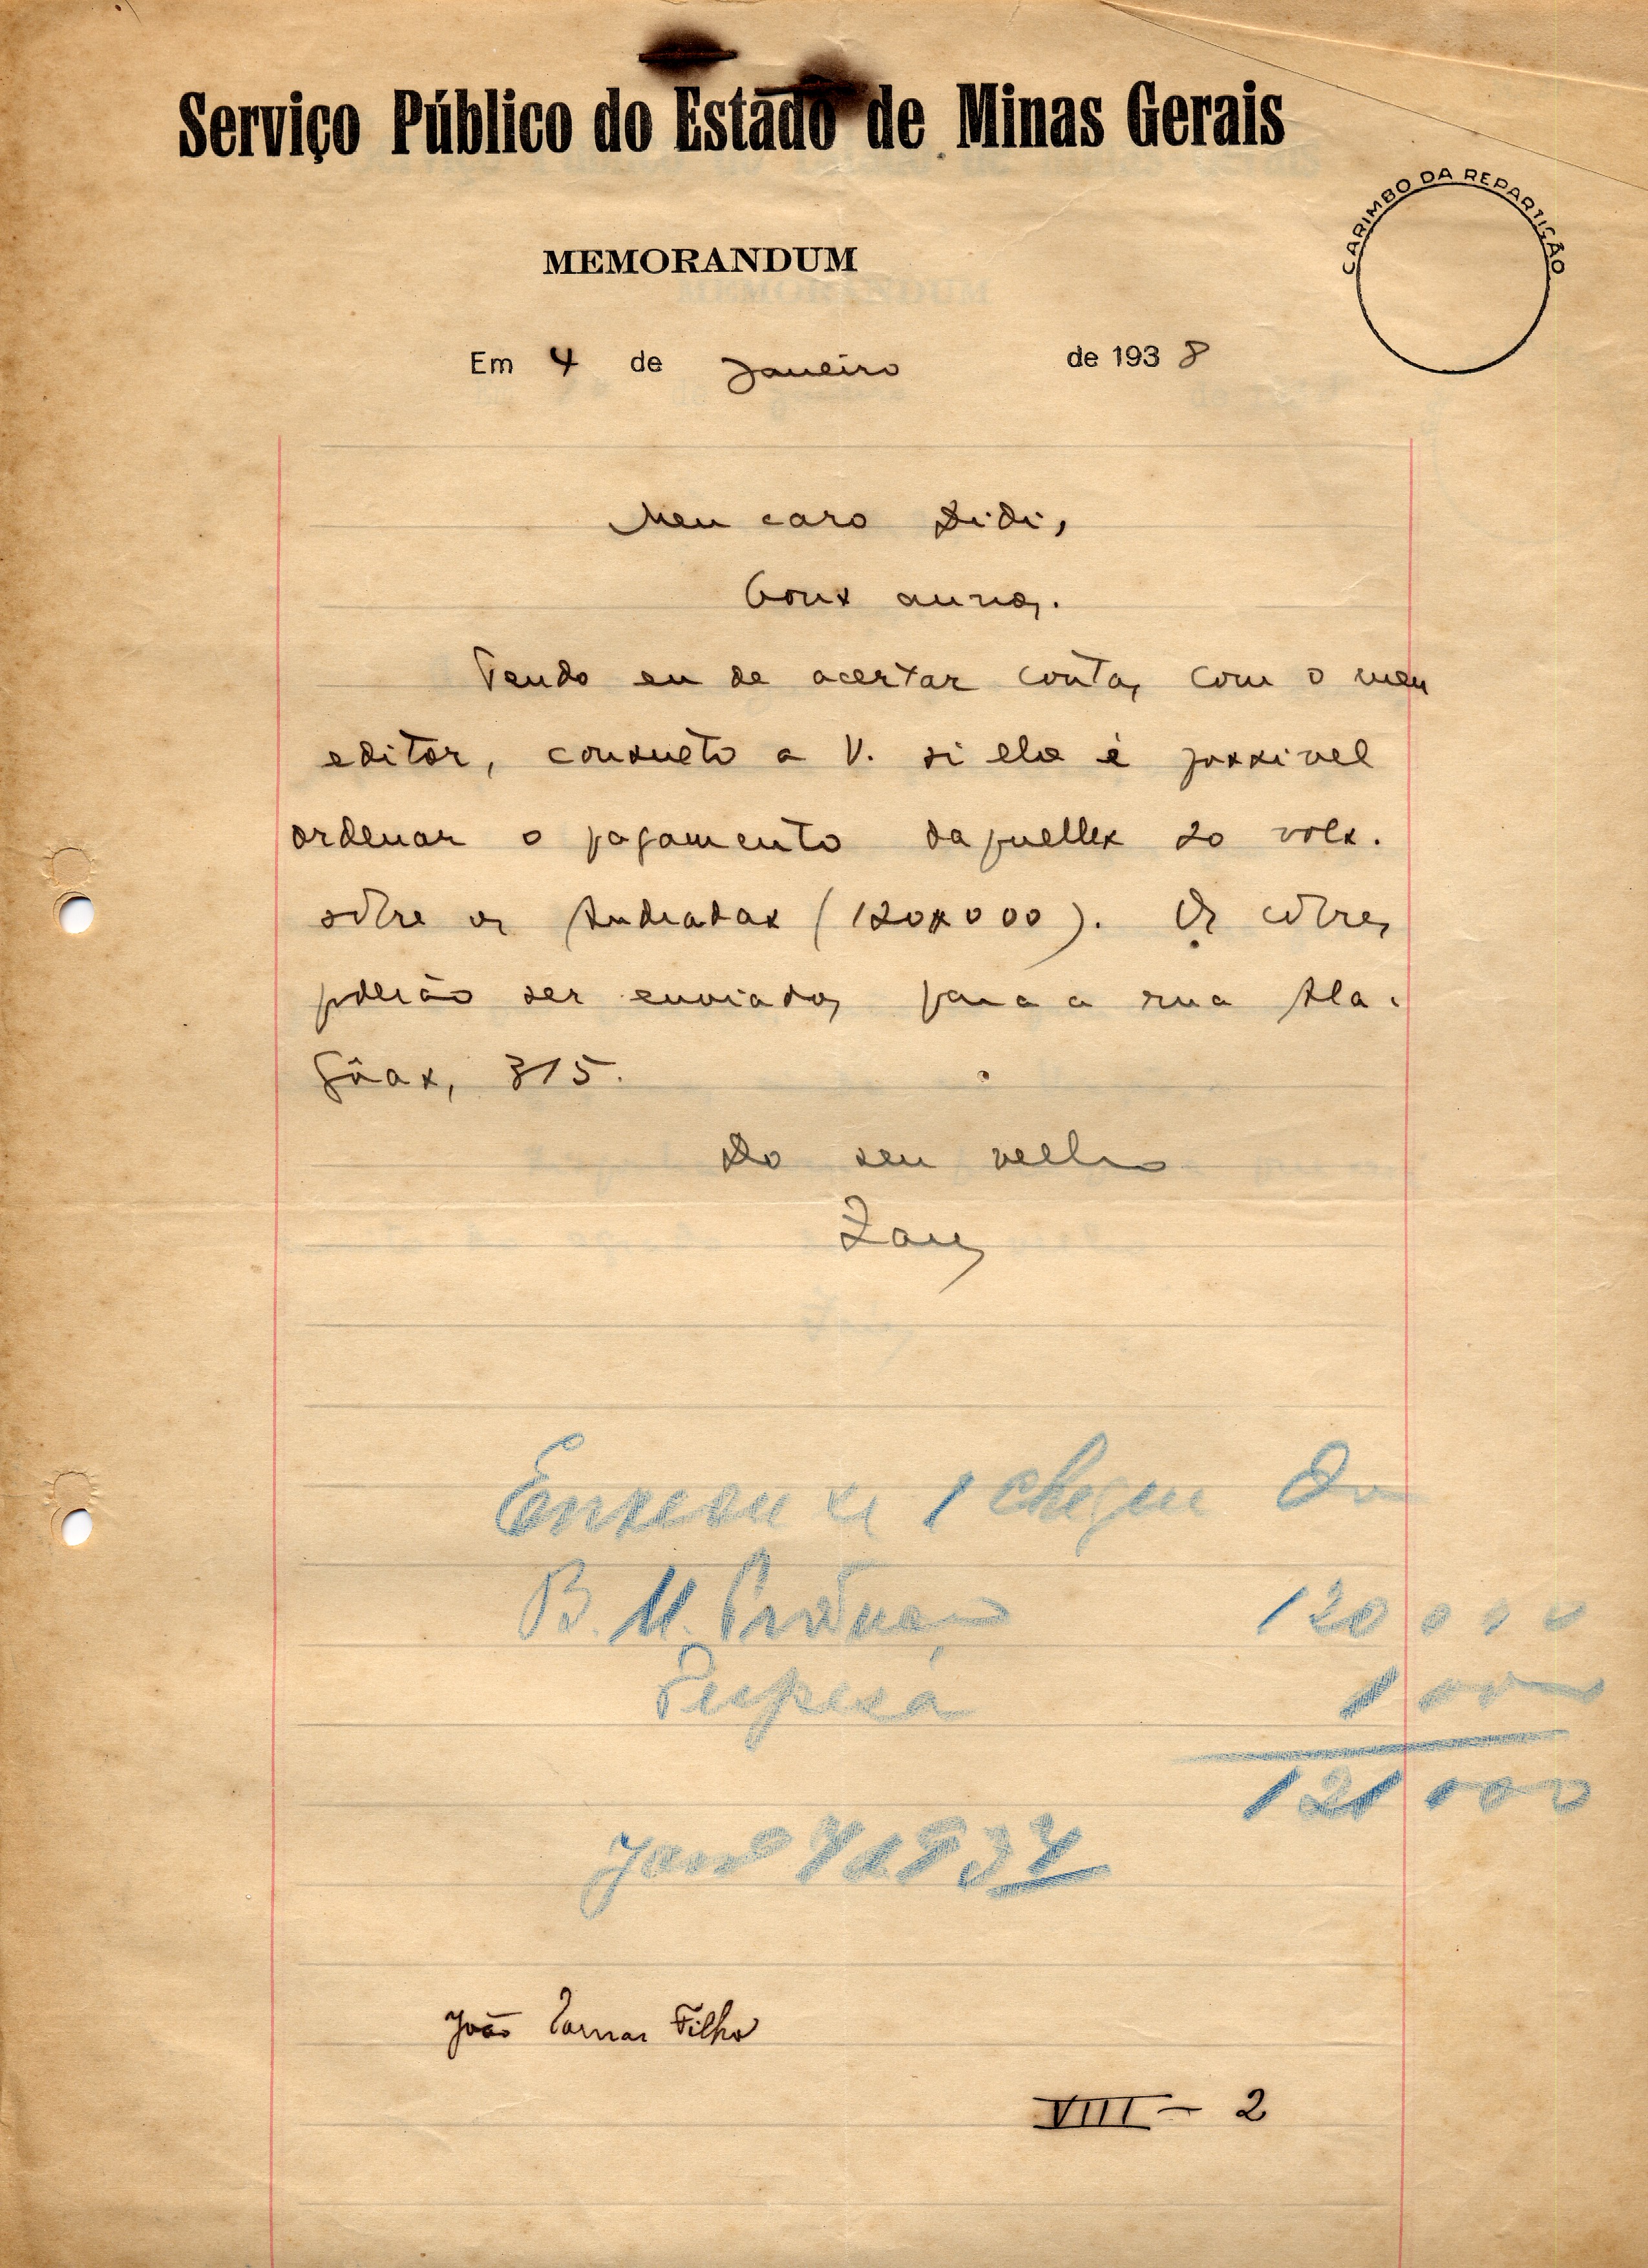 Serviço Público do Estado de Minas Gerais
CARIMBO DA REPARTIÇÃO
MEMORANDUM
Em 4 de Janeiro de 1938
Meu caro Didi,
Bons annos.
Tendo eu de acertar contas com o meu
editor, consulto a V. si lhe é possivel
ordenar o pagamento daquelles 20 vols.
sôbre os Andradas (120$000). Os cobres
poderão ser enviados para a rua Ala-
gôas, 315.
Do seu velho
1 cheque do
B. M. 120 000
Despesa 1000
121 000
João Dornas Filho
VIII - 2